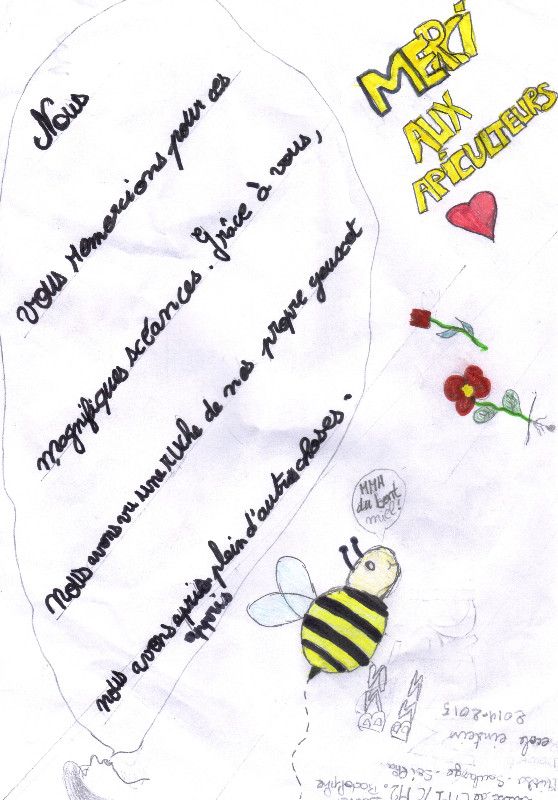 MERCI
AUX
APICULTEURS
Nous
vous remercions pour ces
magnifiques scéances. Grâce à vous,
nous avons vu une ruche de nos propre yeux et
nous avons apris plein d'autres choses.
appris
MMH
du bont
miel!
2014-2015
école einstein